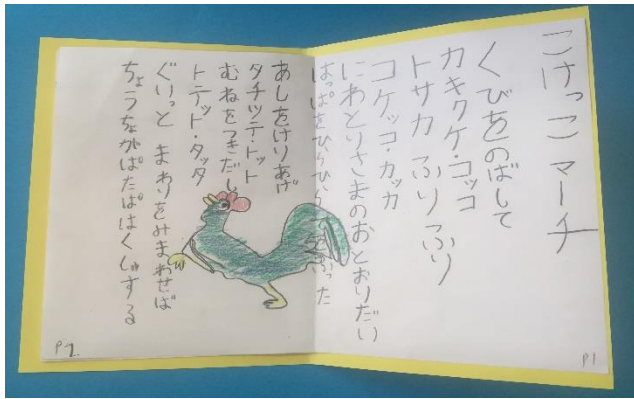 こけっこ マーチ
くびをのばして
カキクケ・コッコ
トサカ ふりふり
コケッコ・カッカ
にわとりさまのおとおりだい
はっぱをひらひら
P1
あしをけりあげ
タチツテ・トット
むねをつきだし
トテット・タッタ
ぐいっと まわりをみまわせば
ちょうちょがぱたぱたはくしゅする
P-2